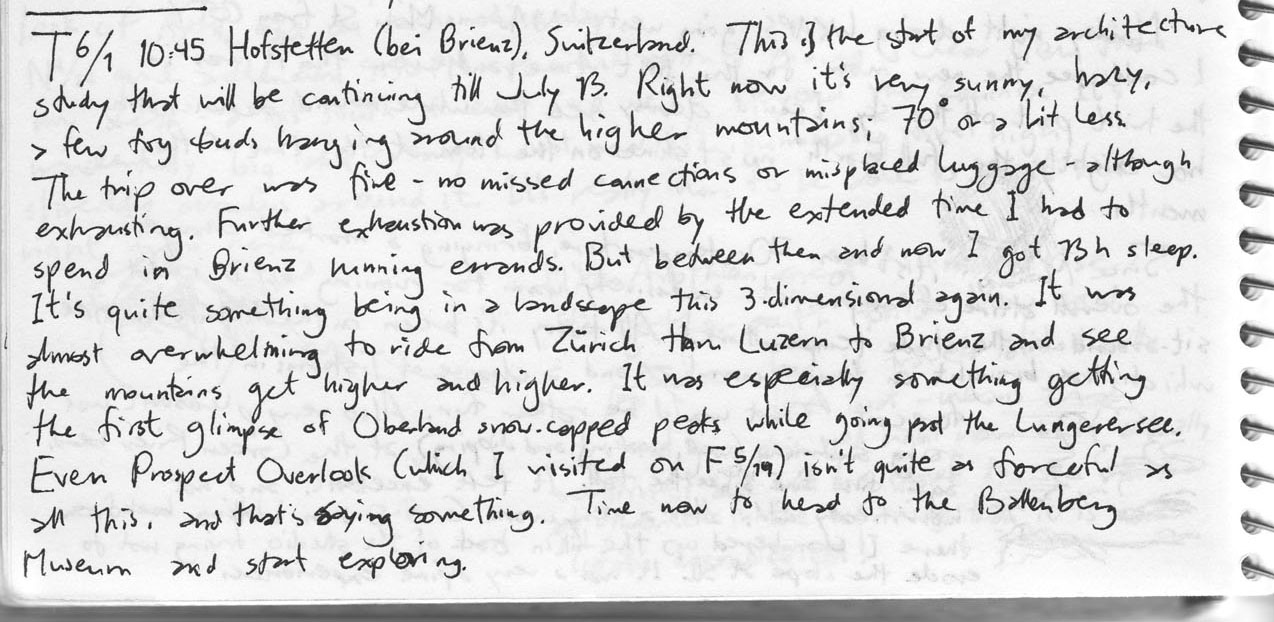 T 6/1 10:45 Hofstetten (bei Brienz), Switzerland. This is the start of my architecture
study that will be continuing till July 13. Right now it's very sunny, hazy,
a few fog clouds hanging around the higher mountains, 70° or a bit less.
The trip over was fine - no missed connections or misplaced luggage - although
exhausting. Further exhaustion was provided by the extended time I had to
spend in Brienz running errands. But between then and now I got 13 h sleep.
It's quite something being in a landscape this 3-dimensional again. It was
almost overwhelming to ride from Zürich thru Luzern to Brienz and see
the mountains get higher and higher. It was especially something getting
the first glimpse of Oberland snow-capped peaks while going past the Lungerersee.
Even Prospect Overlook (which I visited on F 5/14) isn't quite as forceful as
all this, and that's saying something. Time now to head to the Ballenberg
Museum and start exploring.